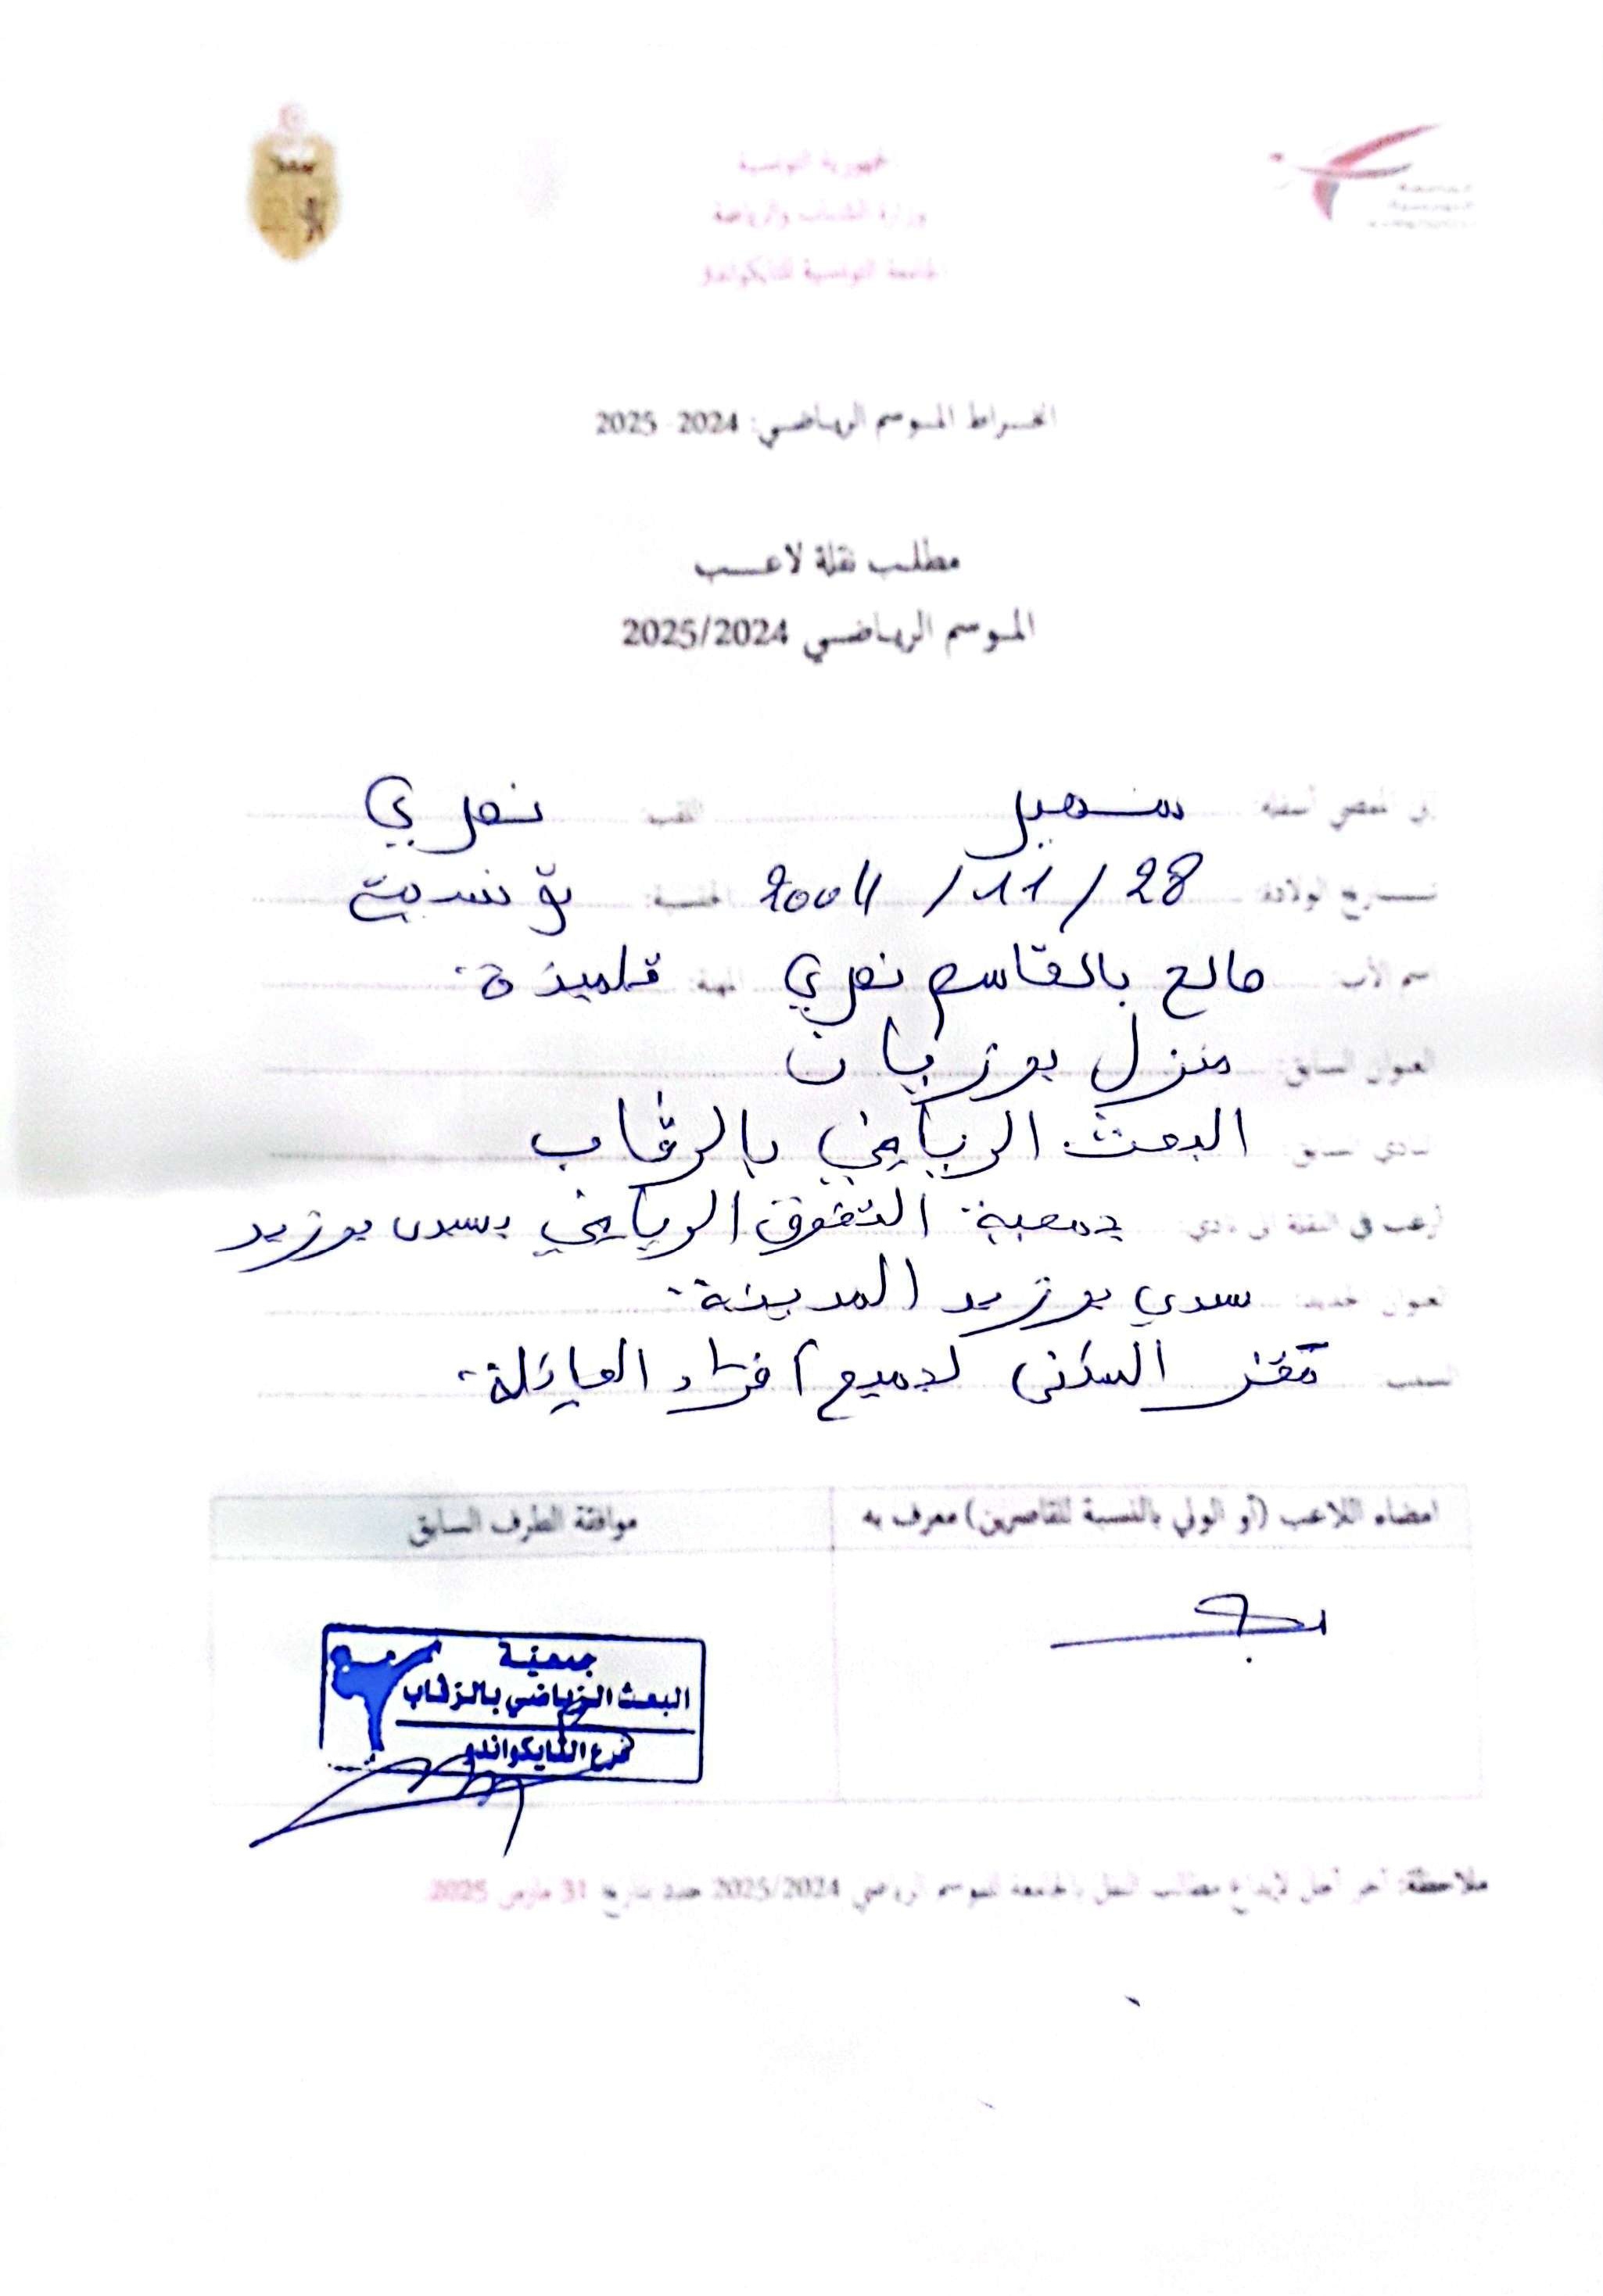 الجمهورية التونسية
وزارة الشباب والرياضة
الجامعة التونسية للتايكواندو
انخراط الموسم الرياضي: 2024 2025
مطلب نقلة لاعب
الموسم الرياضي 2025/2024
إني الممضي أسفله: اللقب: نصري
تاريخ الولادة: 28 / 11 / 2004 الجنسية: تونسية
اسم الأب: صالح بالقاسم نصري المهنة: تلميذة
العنوان السابق: منزل بوزيان
النادي السابق: البعث الرياضي بالرقاب
أرغب في النقلة إلى نادي: جمعية التفوق الرياضي بسيدي بوزيد
العنوان الجديد: سيدي بوزيد المدينة
السبب: مقر السكنى لجميع أفراد العائلة
امضاء اللاعب (أو الولي بالنسبة للقاصرين) معرف به
موافقة الطرف السابق
جمعية
البعث الرياضي بالرقاب
فرع التايكواندو
ملاحظة: آخر أجل لإيداع مطالب النقل بالجامعة للموسم الرياضي 2025/2024 حدد بتاريخ 31 مارس 2025